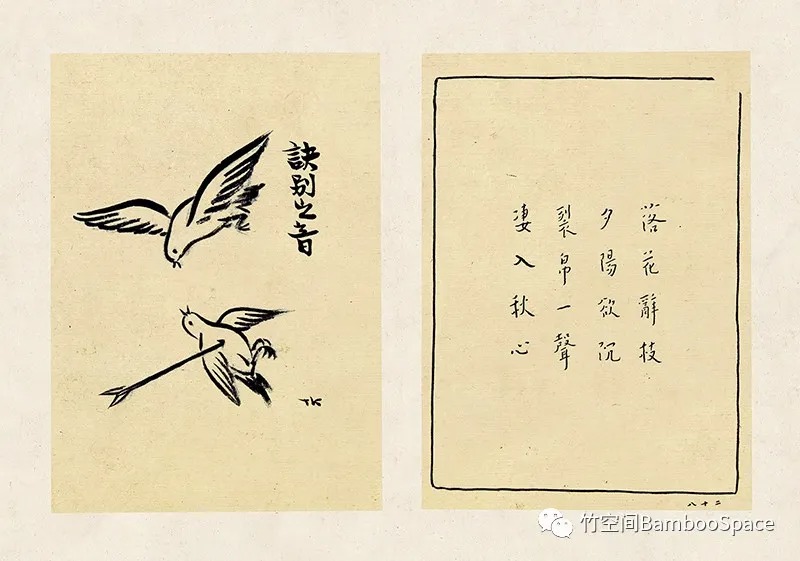 訣別之音
TK
落花辭枝
夕陽欲沉
裂帛一聲
凄入秋心
二十八
竹空间BambooSpace